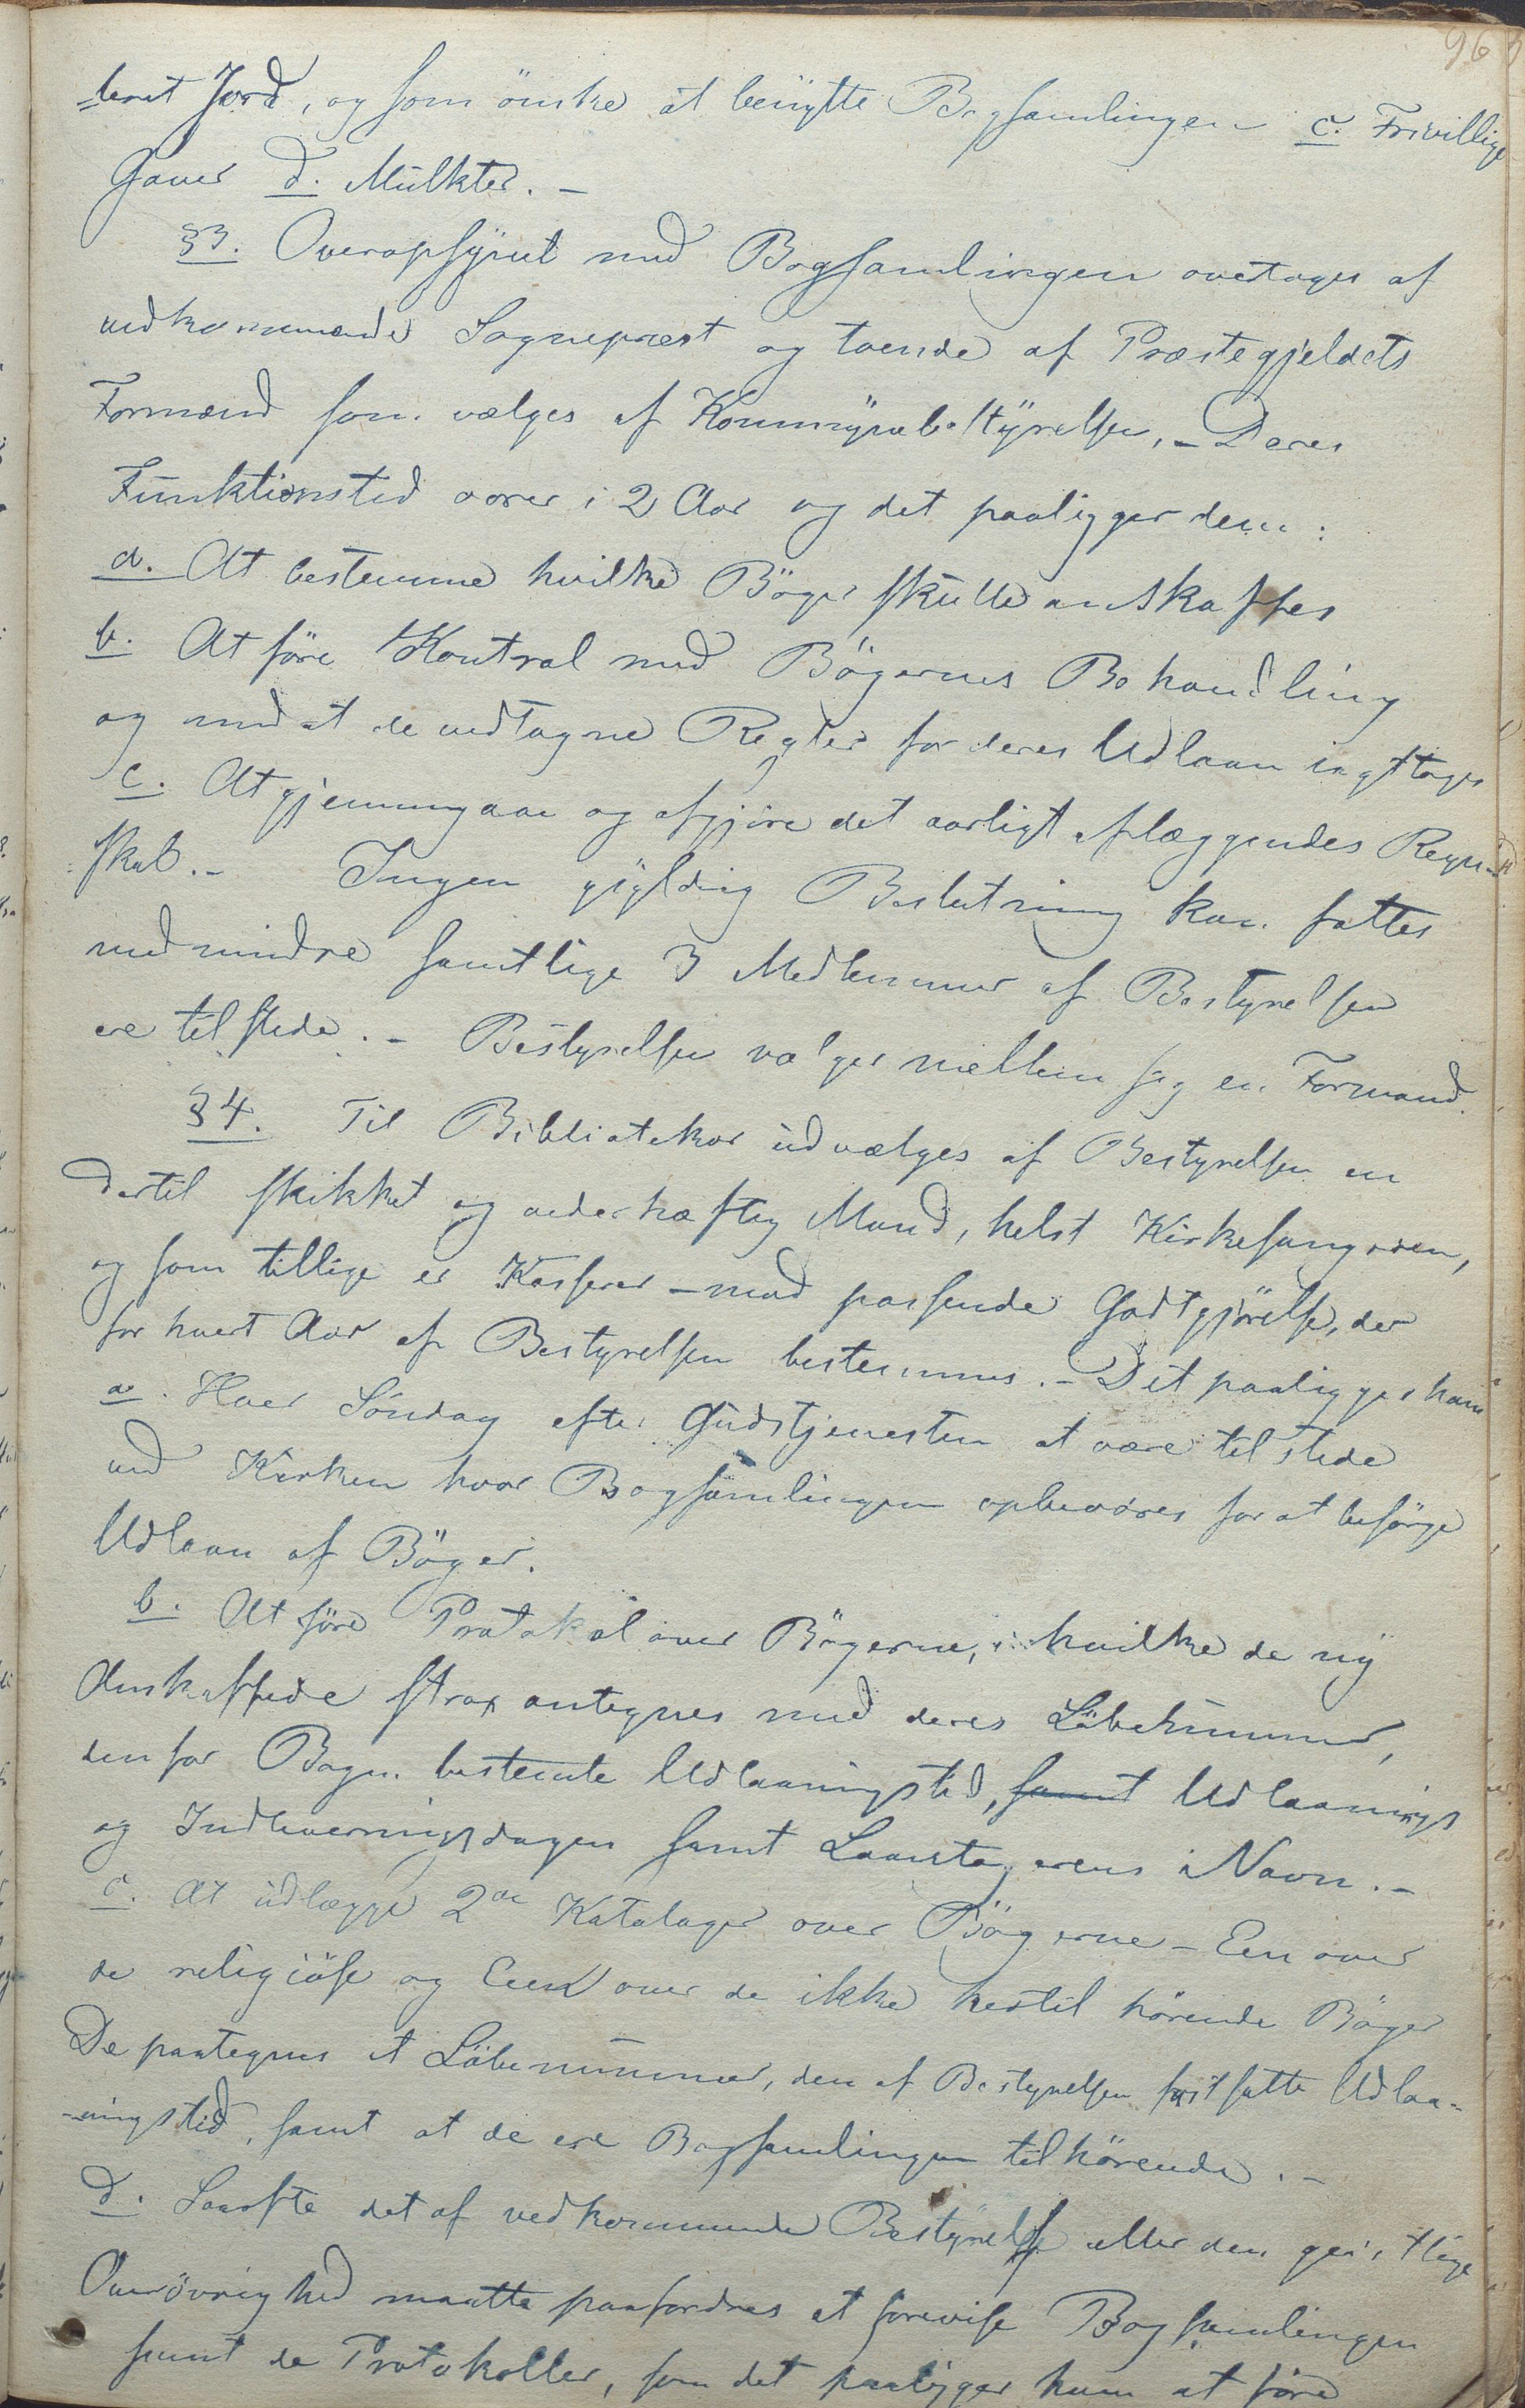 96
-leret Jord, og som önske at benytte Bogsamlingen c. Frivillige
Gaver d. Mulkter. -
§3. Overopsynet med Bogsamlingen overtages af
vedkommende Sognepræst og tvende af Præstegjeldets
Formænd som vælges af Kommunebestyrelsen, - Deres
Funktionstid varer i 2 Aar og det paaligger dem:
a. At bestemme hvilke Böger skulle anskaffes
b. At före Kontrol med Bögernes Behandling
og med at de vedtagne Regler for deres Udlaan iagttages
c. At gjennemgaae og afgjöre det aarligt aflæggendes Regn-
skab. - Ingen gyldig Beslutning kan fattes
medmindre samtlige 3 Medlemmer af Bestyrelsen
ere tilstede. - Bestyrelsen vælger mellem sig en Formand.
§4. Til Bibliotekar udvælges af Bestyrelsen en
dertil skikket og vederhæftig Mand, helst Kirkesangeren,
og som tillige er Kasserer - mod passende Godtgjörelse, der
for hvert Aar af Bestyrelsen bestemmes. - Det paaligger ham
a. Hver Söndag efter Gudstjenesten at være tilstede
ved Kirken hvor Bogsamlingen opbevares for at besörge
Udlaan af Böger.
b. At före Protokol over Bögerne, i hvilke de ny
Anskaffede strax antegnes med deres Löbenummer,
den for Bogen bestemte Udlaaningstid, samt Udlaanings
og Indleveringsdagen samt Laantagerens Navn. -
c. At udlægge 2de Kataloger over Bögerne - Een over
de religiöse og Een over de ikke hertil hörende Böger
De paategnes et Löbenummer, den af Bestyrelsen fastsatte Udlaa-
-ningstid, samt at de ere Bogsamlingen tilhörende. -
d. Saaofte det af vedkommende Bestyrelse eller den geistlige
Overövrighed maatte paafordres at forevise Bogsamlingen
samt de Protokoller, som det paaligger ham at före